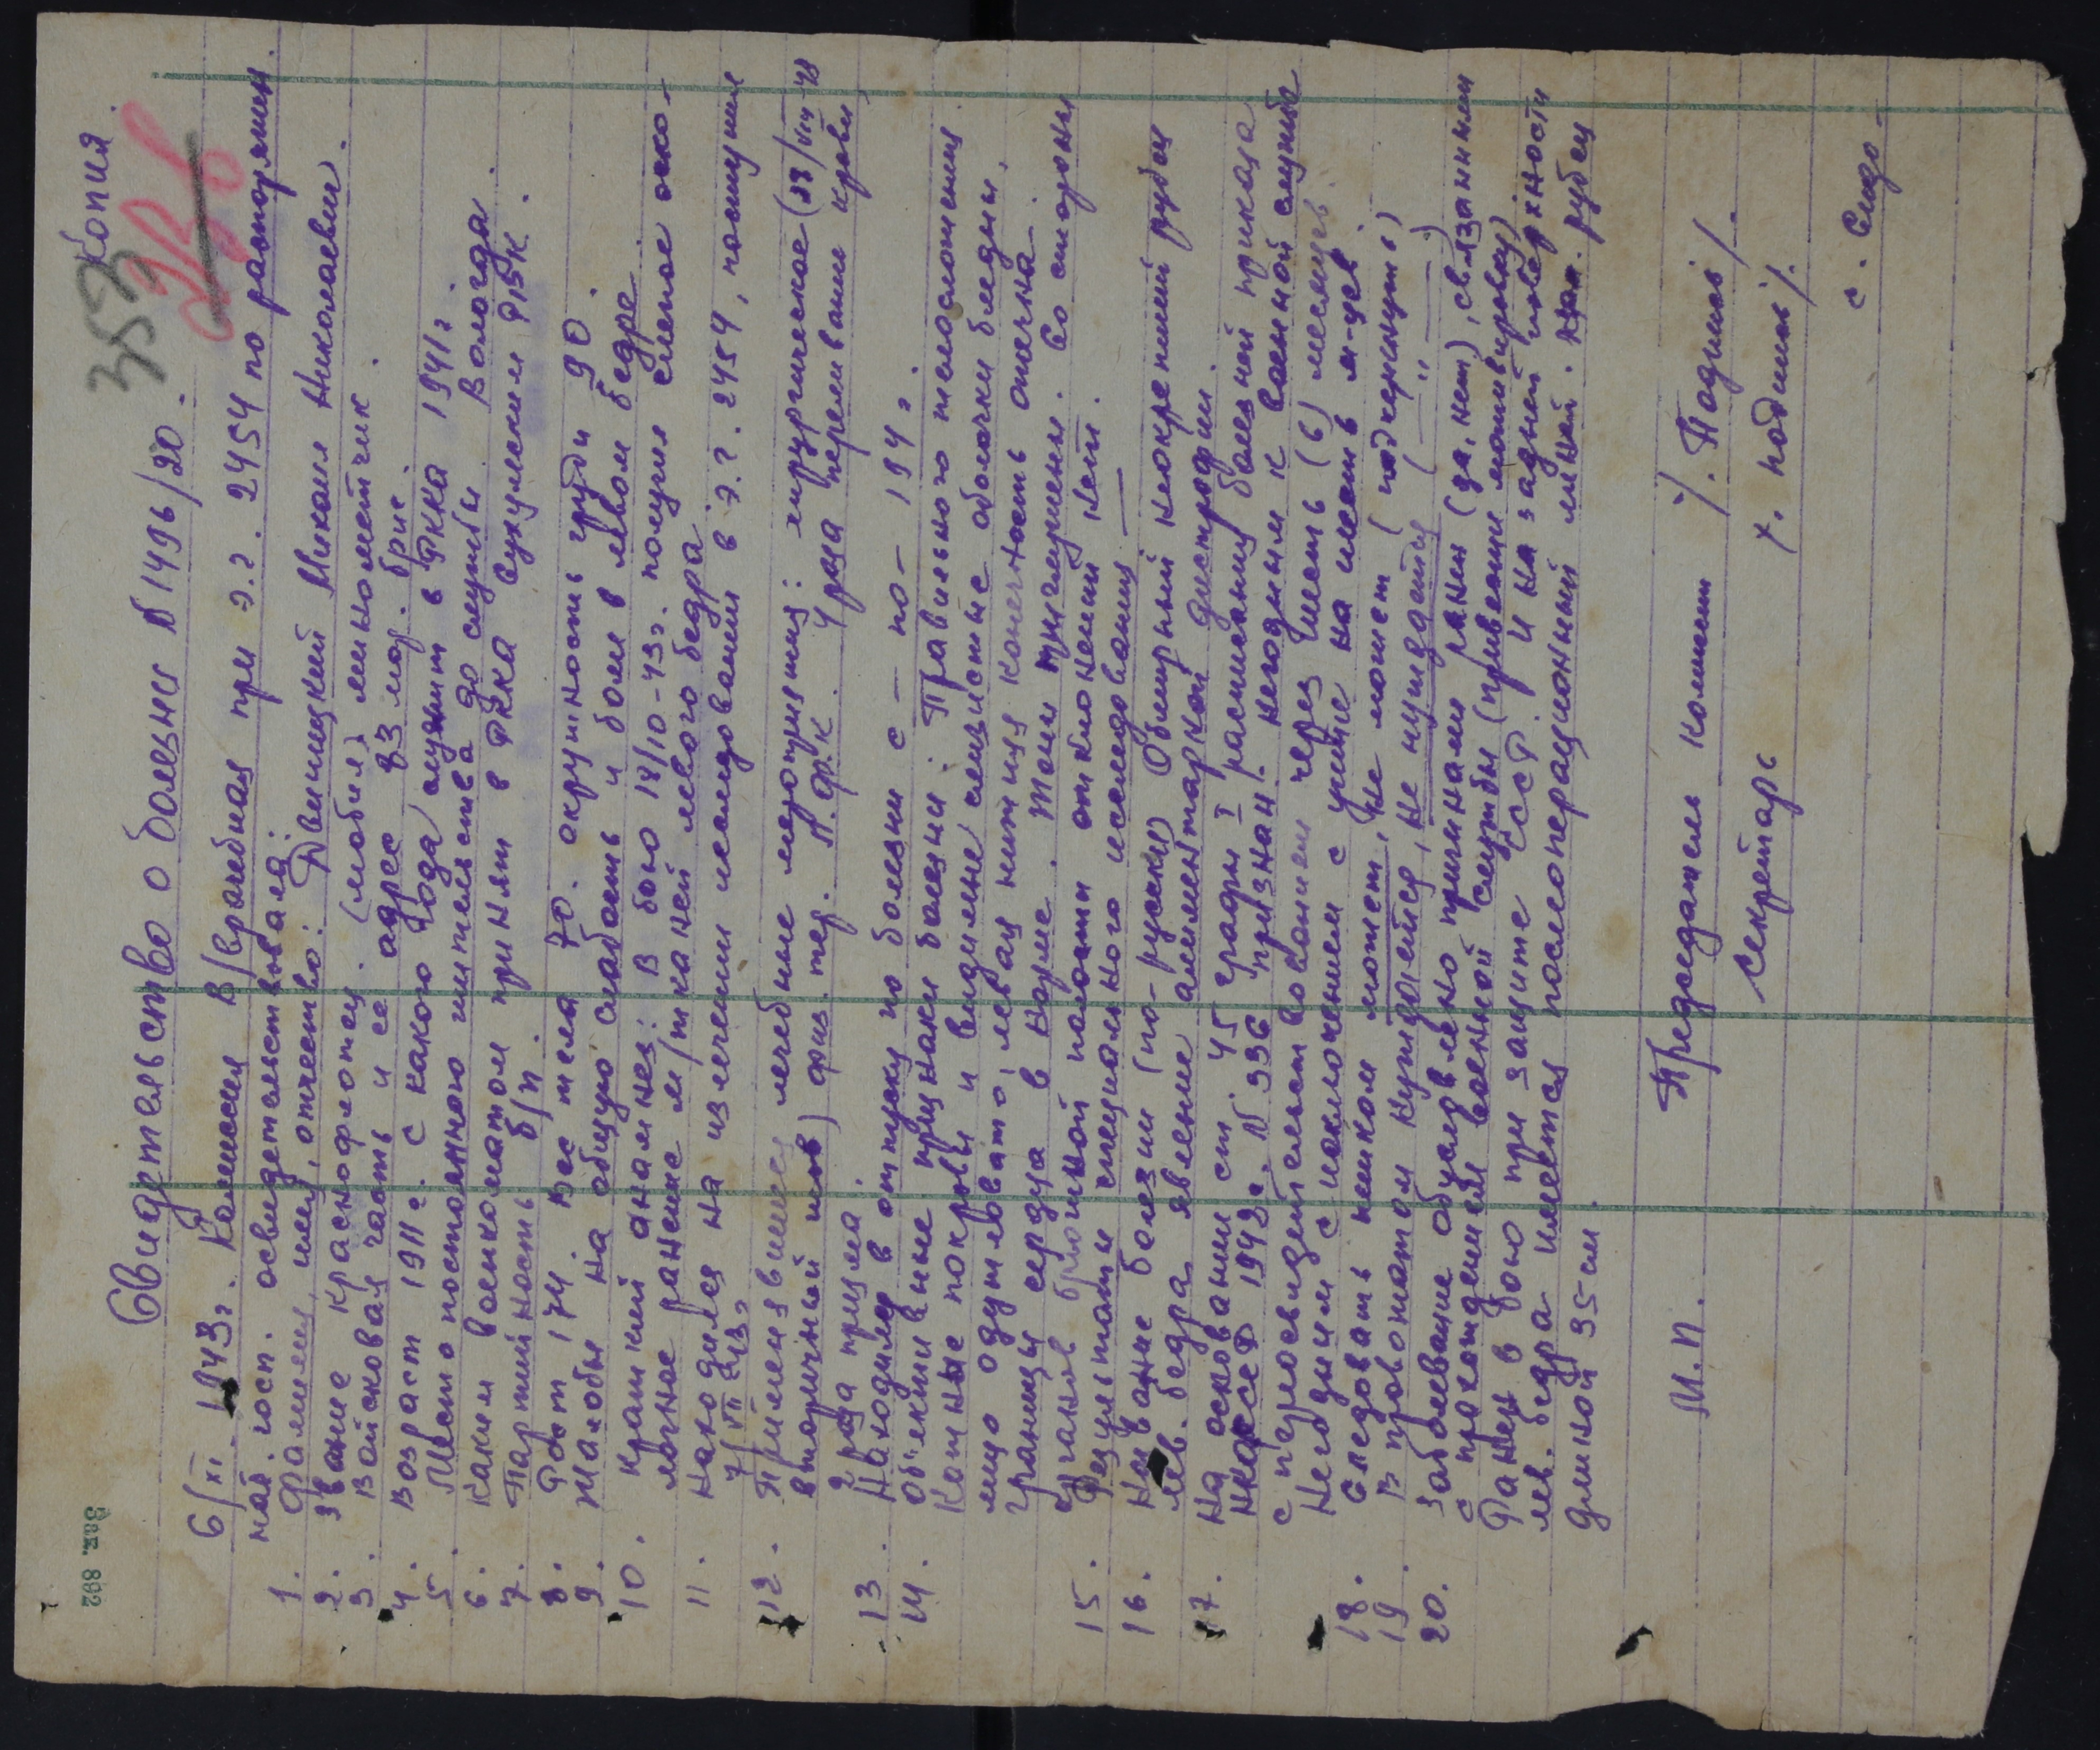 Копия.
353
Свидетельство о болезни № 1496/20.
6/XI. 1943г. Комиссия В/врачебная при э.г. 2454 по распоряжен.
нач. госп. освидетельствовала:
1. Фамилия, имя, отчество: Двиницкий Михаил Николаевич.
2. Звание краснофлотец. (мобил) минометчик.
3. Войсковая часть и ее адрес 83 мор. бриг.
4. Возраст 1911 г. с какого года служит в РККА 1941г.
5. Место постоянного жительства до службы Вологда.
6. Каким военкоматом принят в РККА Сухумским РВК.
7. Партийность б/п.
8. Рост 174. Вес тела 70. окружность груди 90.
9. Жалобы на общую слабость и боли в левом бедре.
10. Краткий анамнез: В бою 18/10-43г. получил слепое оско-
лочное ранение м/тканей левого бедра.
11. Находился на излечении исследовании в э.г. 2454, поступил
7/VII 43г
12. Применявшиеся лечебные мероприятия: хирургическое (23/VIII-43
вторичный шов) физ. тер. Л.Ф.К. 4 раза переливание крови,
2 раза плазма.
13. Находился в отпуску по болезни с — по — 194 г.
14. Объективные признаки болезни: Правильного телосложения.
Кожные покровы и видимые слизистые оболочки бледны,
лицо одутловато, левая нижняя конечность отечна.
Границы сердца в норме. Тоны приглушены. Со стороны
органов брюшной полости отклонений нет.
15. Результаты специального исследования —
16. Название болезни (по-русски) Обширный неокрепший рубец
лев. бедра, явление алиментарной дистрофии.
17. На основании ст. 45 графы I расписания болезней приказа
НКО СССР 1942г. № 336 признан. негодным к военной службе
с переосвидетельствованием через шесть (6) месяцев.
Негодим с исключением с учета на шесть м-цев.
18. Следовать пешком может, не может (подчеркнуть)
19. В провожатом нуждается, не нуждается (—"—)
20. Заболевание обусловлено причинами ранен (да, нет), связанными
с прохождением военной службы (привести мотивировку)
Ранен в бою при защите СССР. И на задней поверхности
лев. бедра имеется послеоперационный линей. рубец
длиной 35 см.
М.П. Председатель комиссии /. Подпись/.
Секретарь /. подпись/.
Зак. 892